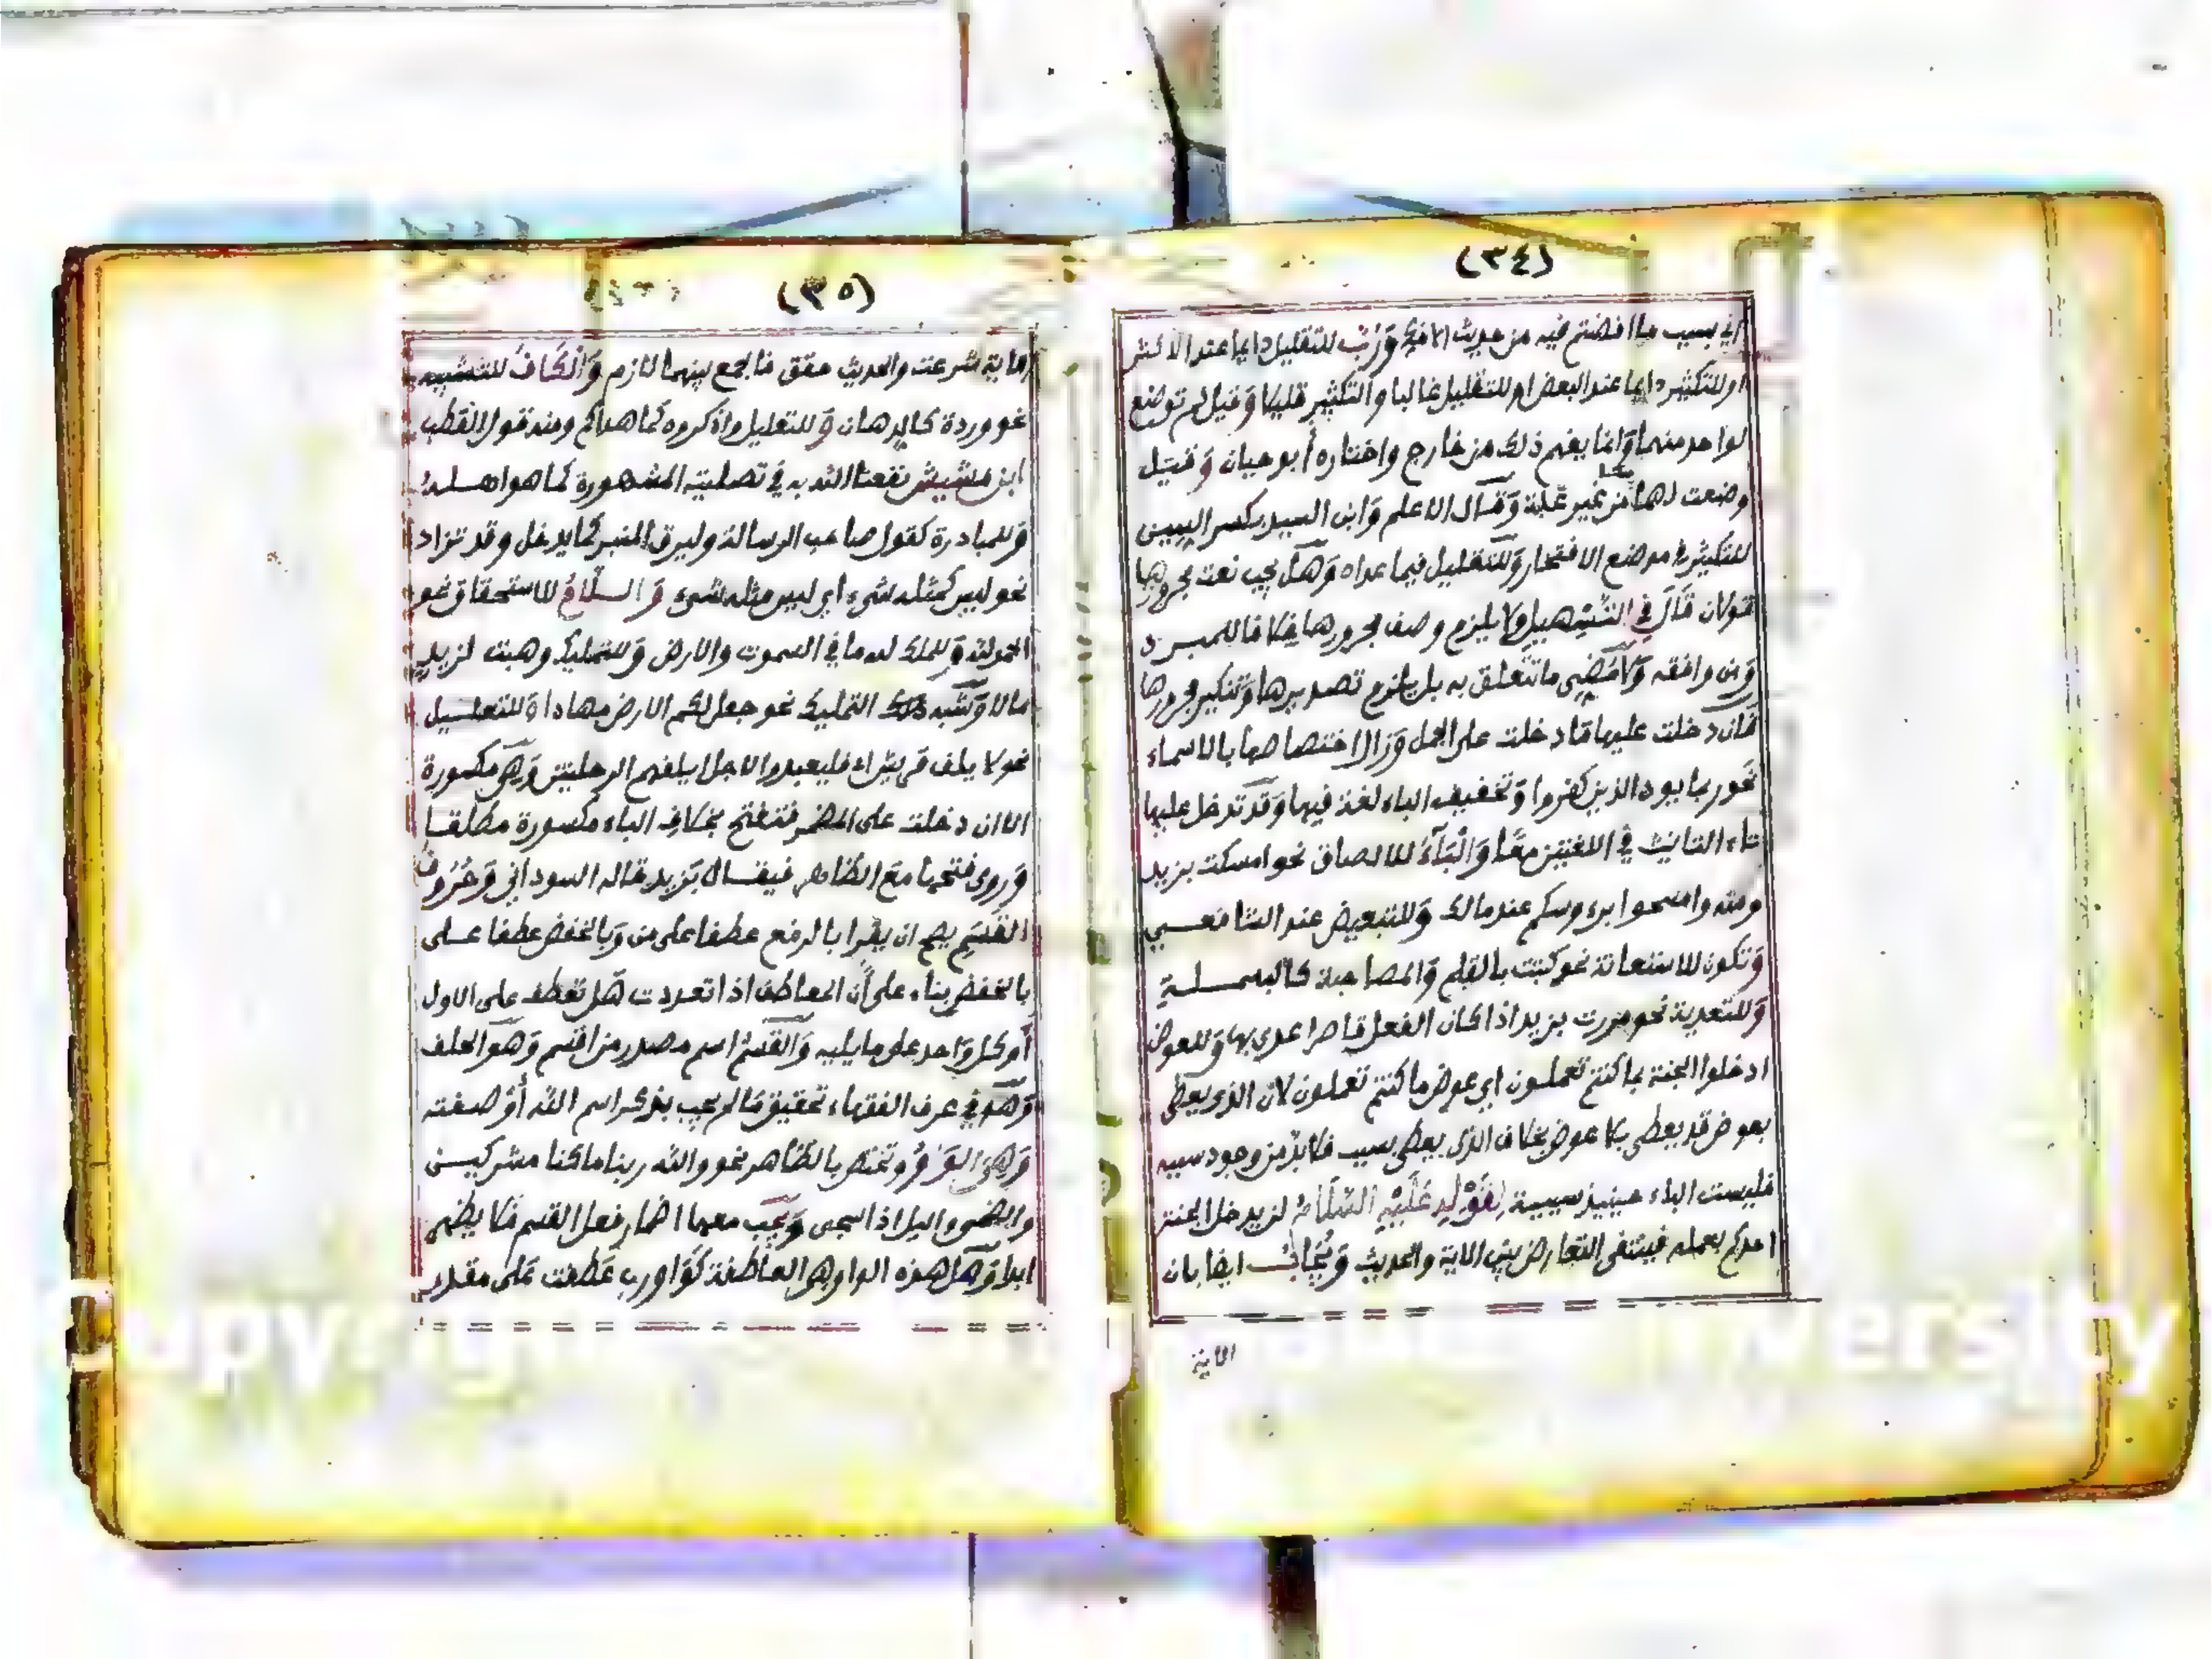 (٣٤)
اي بسبب ما افضتم فيه من حديث الافك وَرُبَّ للتقليل دايما عند الاكثر
او للتكثير دايما عند البعض او للتقليل غالبا والتكثير قليلا وَقيل لم توضع
لواحد منهما وَانما يفهم ذلك من خارج واختاره أبو حيان وَقيل
وضعت لهما من غير غلبة وَقال الاعلم وَابن السيد بكسر السين
للتكثير في موضع الافتخار وَللتقليل فيما عداه وَهل يجب نعت مجرورها
قولان قَالَ في التسهيل ولا يلزم وصف مجرورها خلافا للمبرد
وَمن وافقه وَلا مضي ما تتعلق به بل يلزم تصديرها وَتنكير مجرورها
فَان دخلت عليها ما دخلت على الجمل وَزال اختصاصها بالاسماء
نَحو ربما يود الذين كفروا وَتخفيف الباء لغة فيها وَقد تدخل عليها
تاء التانيث في اللغتين معًا وَالْبَآءُ للالصاق نحو امسكت بزيد
ومنه وامسحوا برءوسكم عند مالك وَللتبعيض عند الشافعي
وَتكون للاستعانة نحو كتبت بالقلم وَالمصاحبة كالبسملة
وَللتعدية نحو مررت بزيد اذا كان الفعل قاصرا عدي بها وَللعوض
ادخلوا الجنة بما كنتم تعملون اي عوض ما كنتم تعملون لان الذي يعطى
بعوض قد يعطى بلا عوض بخلاف الذي يعطى بسبب فلا بدّ من وجود سببه
فليست الباء حينيذ سببية لِقَوْلِهِ عَلَيْهِ السَّلَامُ لن يدخل الجنة
احدكم بعمله فينتفي التعارض بين الاية والحديث وَيُجَابُ ايضا بان
الاية
(٣٥)
الاية شرعت والحديث حقق فالجمع بينهما لازم وَالْكَافُ للتشبيه
نحو وردة كالدهان وَللتعليل واذكروه كما هداكم ومنه قول القطب
ابن مشيش نفعنا الله به في تصليته المشهورة كما هو اهله
وَللمبادرة كقول صاحب الرسالة وليرق المنبر كما يدخل وقد تزاد
نحو ليس كمثله شيء اي ليس مثله شيء وَ السلَّامُ للاستحقاق نحو
الحمد لله وَللملك له ما في السموت والارض وَللتمليك وهبت لزيد
مالا وَشبه ذلك التمليك نحو جعل لكم الارض مهادا وَللتعليل
نحو لايلف قريش اي فليعبدوا لاجل ايلفهم الرحلتين وَهي مكسورة
الا ان دخلت على المضمر فتفتح بخلاف الباء مكسورة مطلقا
وَروي فتحها مع الظاهر فيقال بَزيد قاله السوداني وَحُرُوفُ
القَسَمِ يصح ان يقرا بالرفع عطفا على من وَبالخفض عطفا على
بالخفض بناء على أن المعاطف اذا تعددت هل تعطف على الاول
أو كل وَاحد على ما يليه وَالقَسَمُ اسم مصدر من اقسم وَهو الحلف
وَهو في عرف الفقهاء تحقيق ما لم يجب بذكر اسم الله أو صفته
وَهِيَ الوَاوُ وتختص بالظاهر نحو والله ربنا ما كنا مشركين
والضحى واليل اذا سجى وَيجب معها اضمار فعل القسم فلا يظهر
ابدا وَهل هذه الواو هي العاطفة كَواو رب عَطفت عَلى مقدر